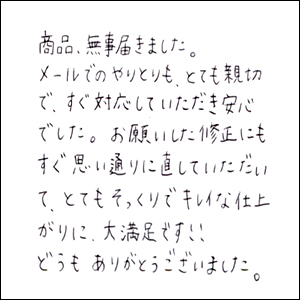 商品、無事届きました。
メールでのやりとりも、とても親切
で、すぐ対応していただき安心
でした。お願いした修正にも
すぐ思い通りに直していただい
て、とてもそっくりでキレイな仕上
がりに、大満足です!!
どうもありがとうございました。